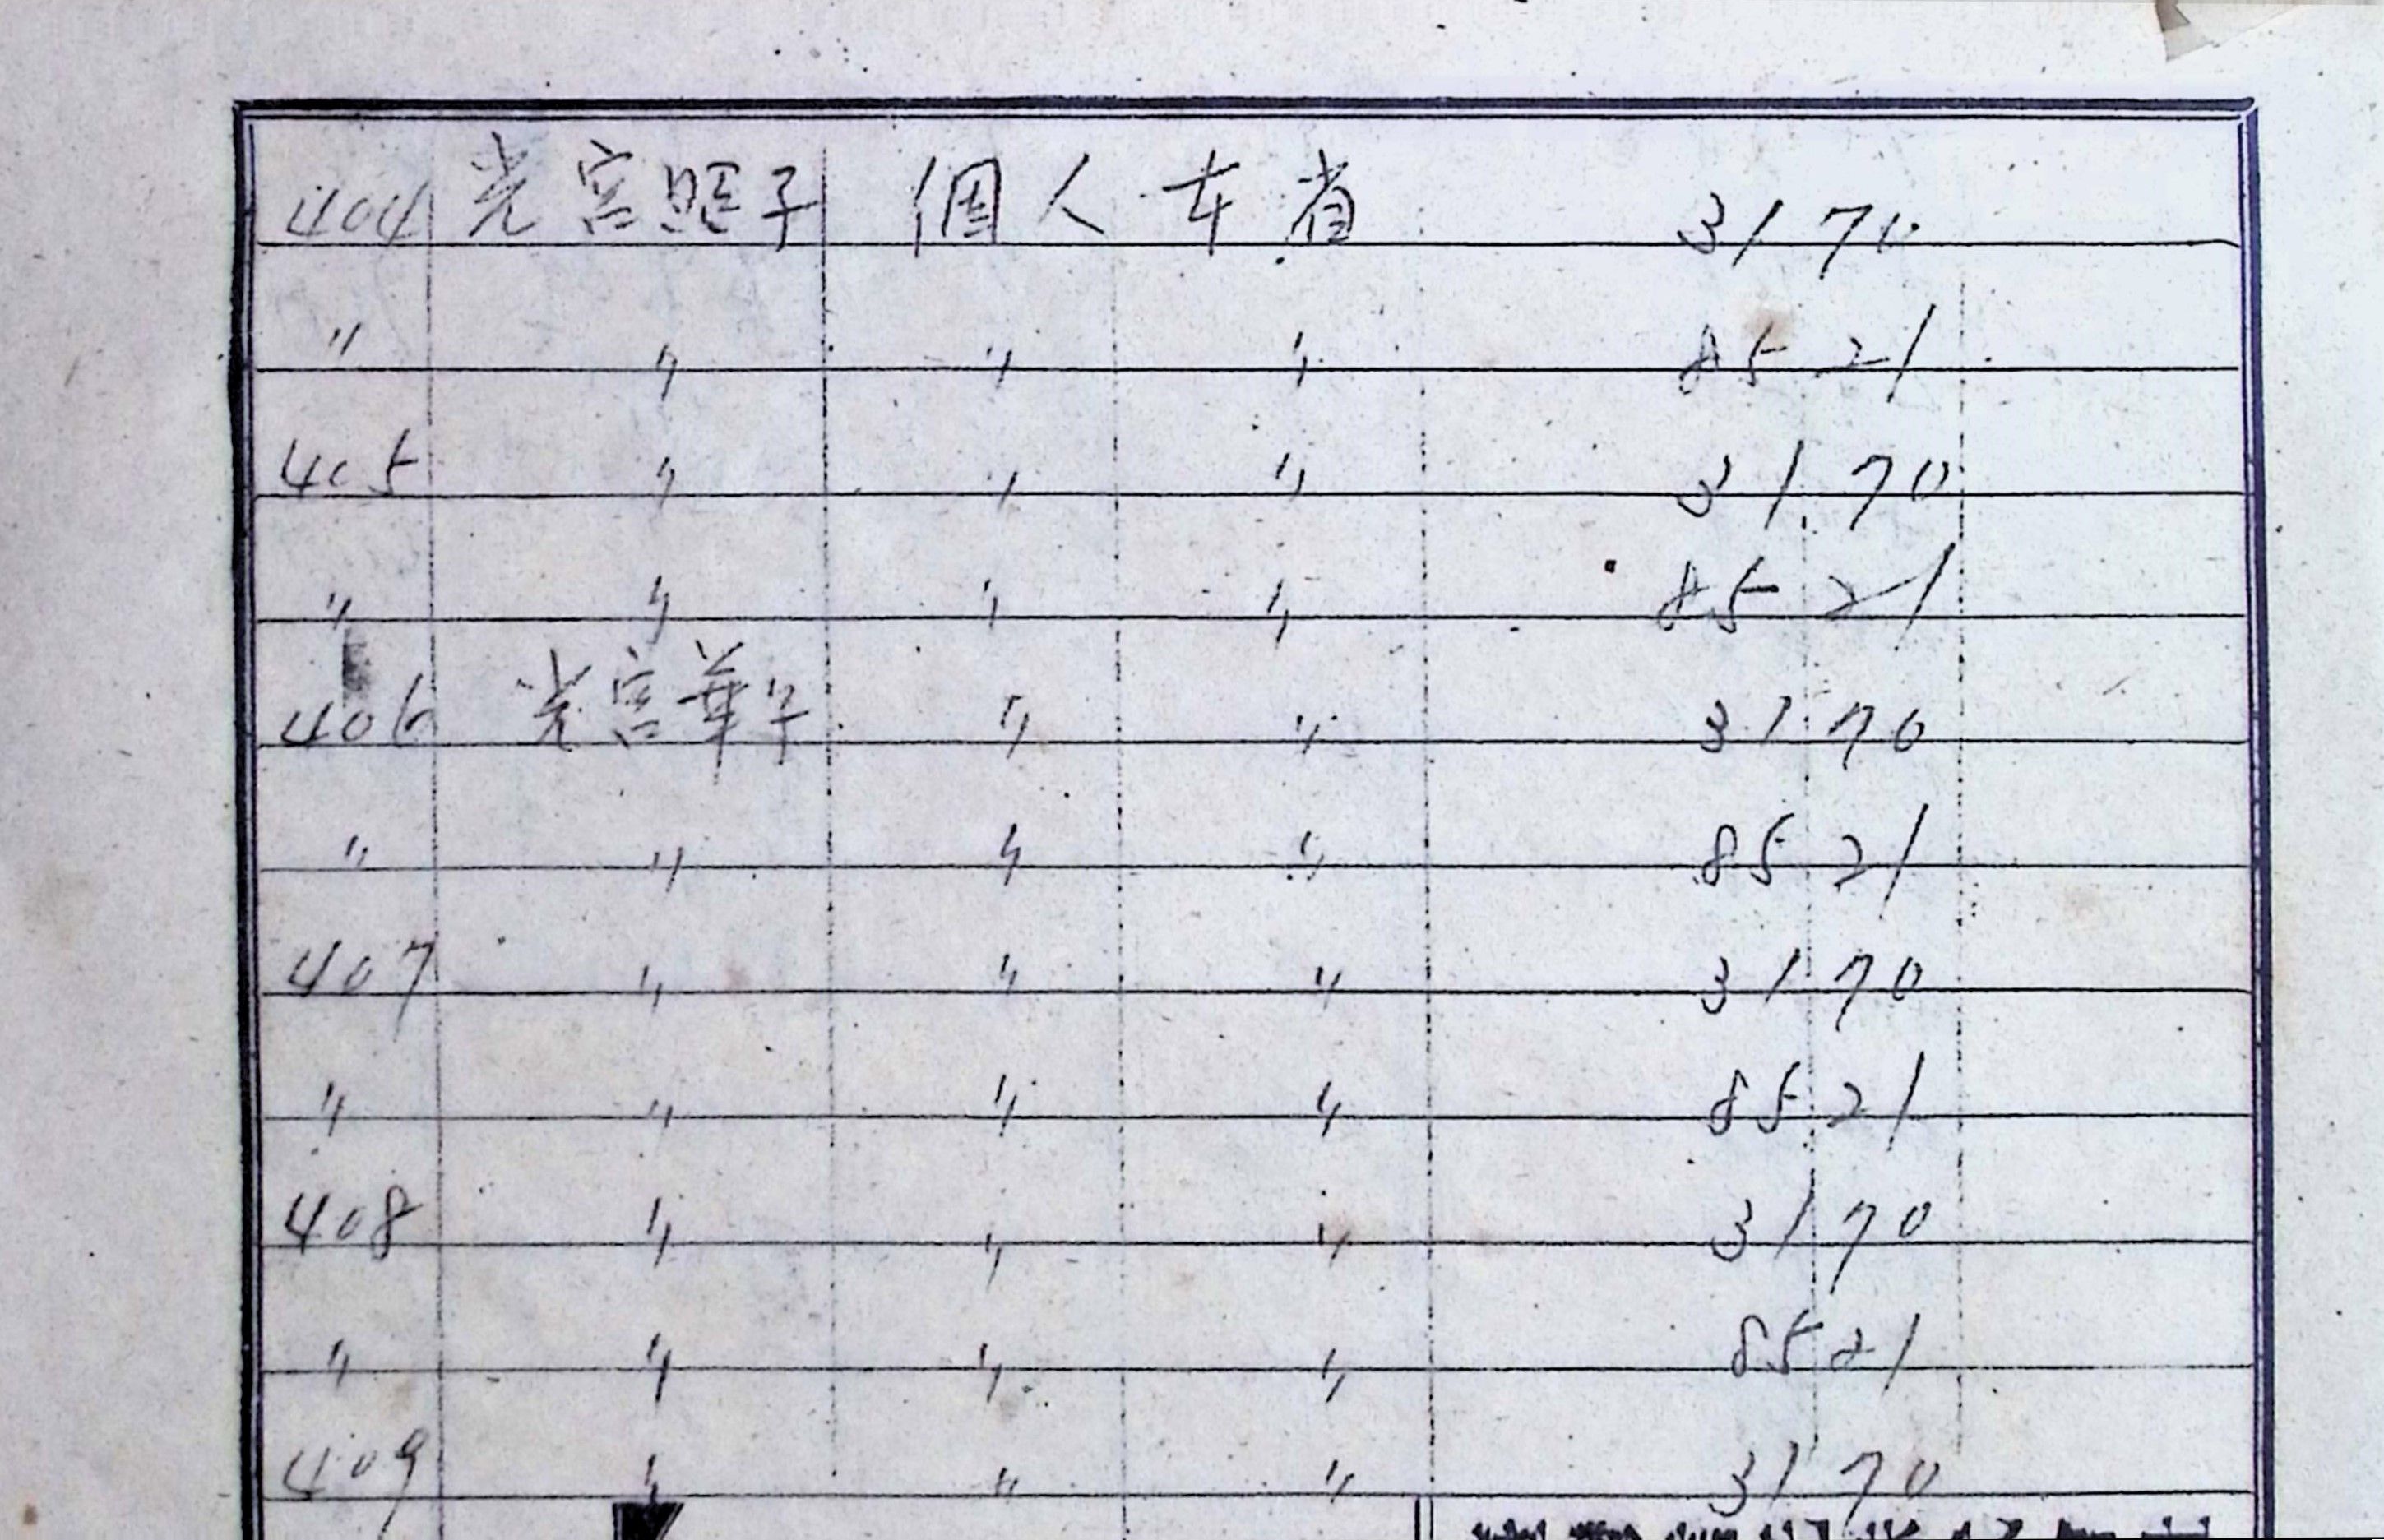 404 光宮照子 個人 本省 3170
〃 〃 〃 〃 8521
405 〃 〃 〃 3170
〃 〃 〃 〃 8521
406 光宮華子 〃 〃 3170
〃 〃 〃 〃 8521
407 〃 〃 〃 3170
〃 〃 〃 〃 8521
408 〃 〃 〃 3170
〃 〃 〃 〃 8521
409 〃 〃 〃 3170